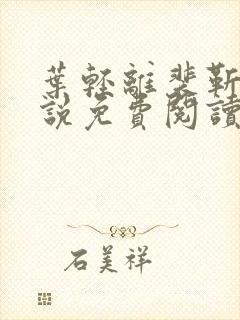 葉輕離裴靳
說免費閱讀
石美祥